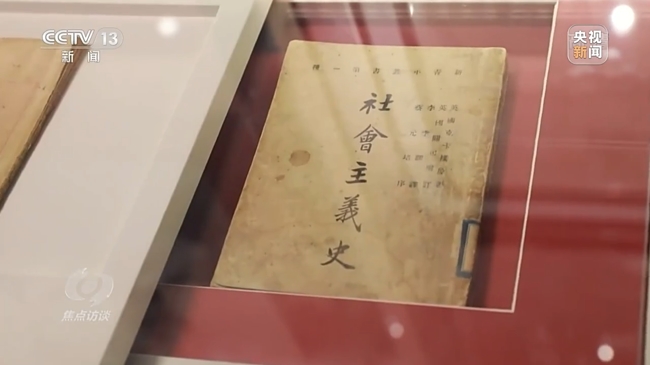 CCTV 13
新闻
央视新闻
新青年叢書第一種
李季譯
蔡元培序
社會主義史
焦点访谈